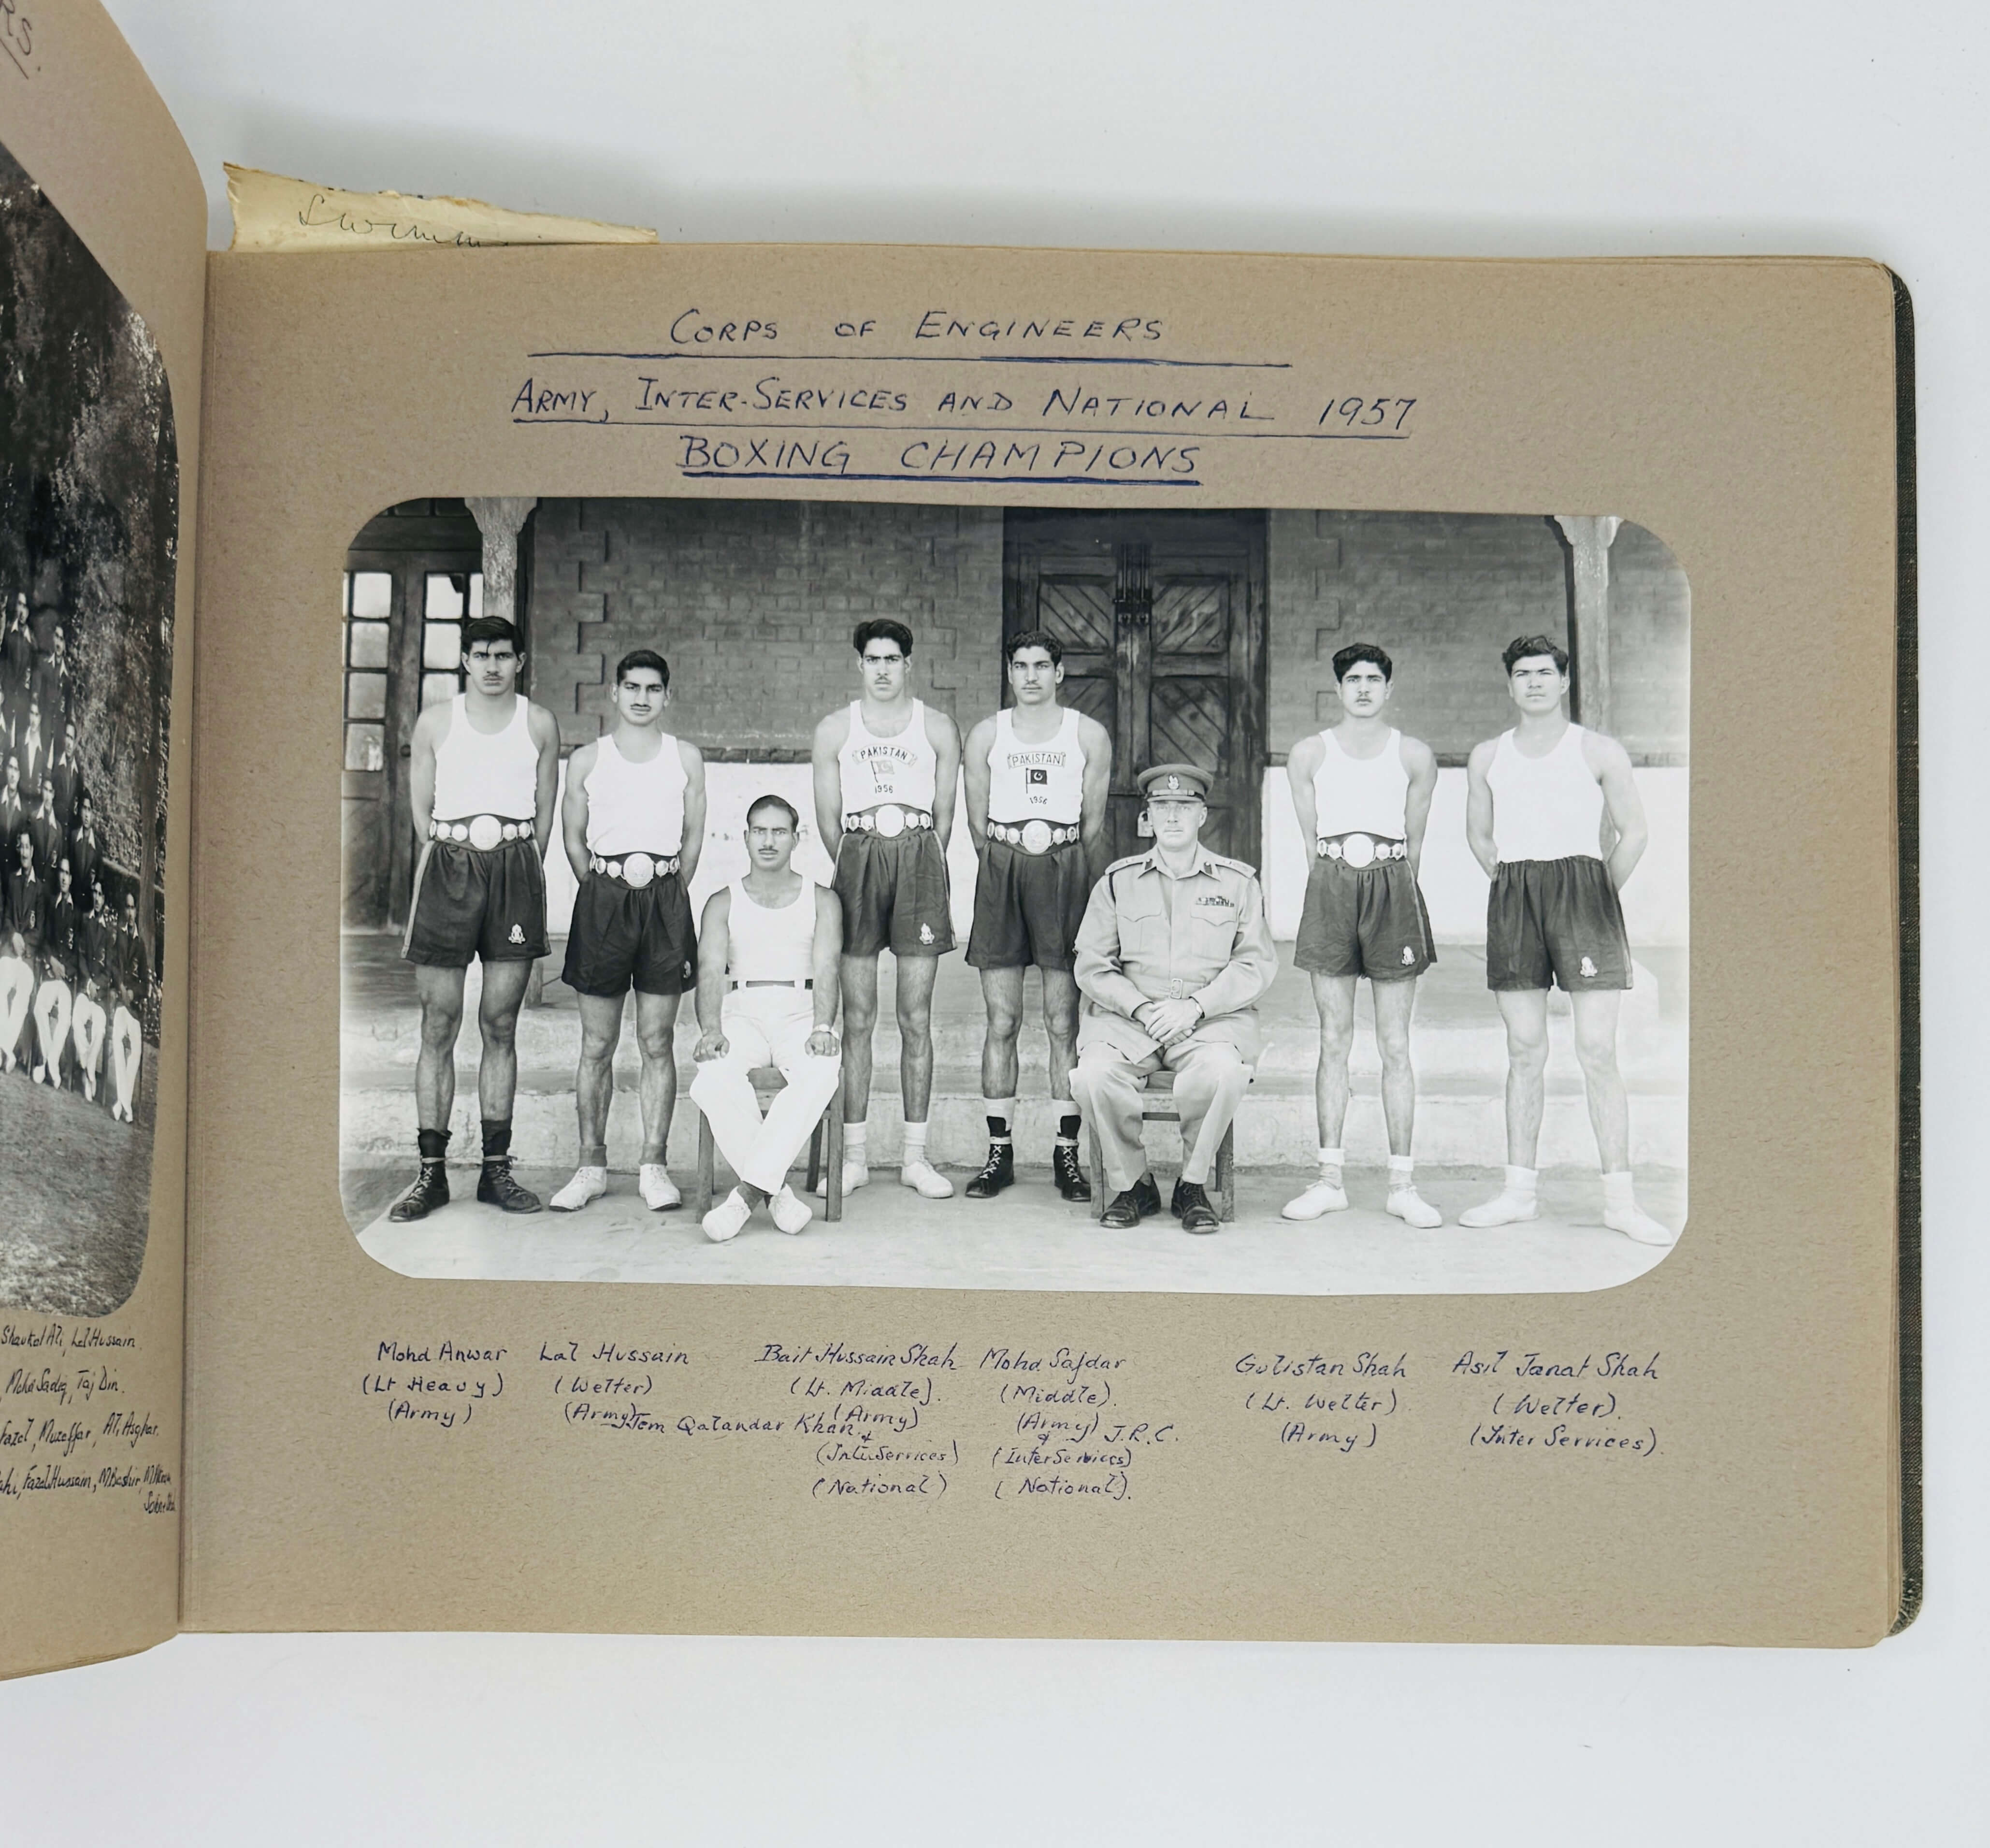 RS.
Swimm
CORPS OF ENGINEERS
ARMY, INTER-SERVICES AND NATIONAL 1957
BOXING CHAMPIONS
PAKISTAN
1956
PAKISTAN
1956
Mohd Anwar
(Lt Heavy)
(Army)
Lal Hussain
(Welter)
(Army)
Jem Qalandar Khan
Bait Hussain Shah
(Lt. Middle).
(Army)
&
(Inter Services)
(National)
Mohd Safdar
(Middle).
(Army)
&
(Inter Services)
(National).
J.R.C.
Gulistan Shah
(Lt. Welter)
(Army)
Asil Janat Shah
(Welter).
(Inter Services).
Shaukat Ali, Lal Hussain.
Mohd Sadiq, Taj Din.
Fazal, Muzaffar, Ali Asghar.
Fazal Hussain, M Bashir,